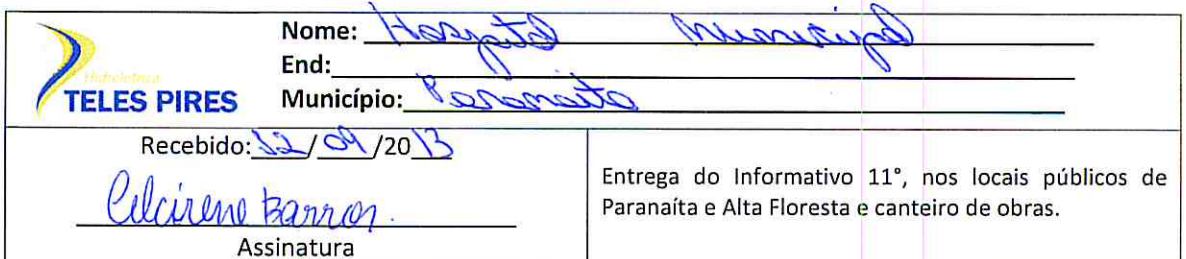 Hidrelétrica
TELES PIRES
Nome: Hospital Municipal
End:
Município: Paranaíta
Recebido: 12/09/2013
Celcirene Barros.
Assinatura
Entrega do Informativo 11°, nos locais públicos de
Paranaíta e Alta Floresta e canteiro de obras.